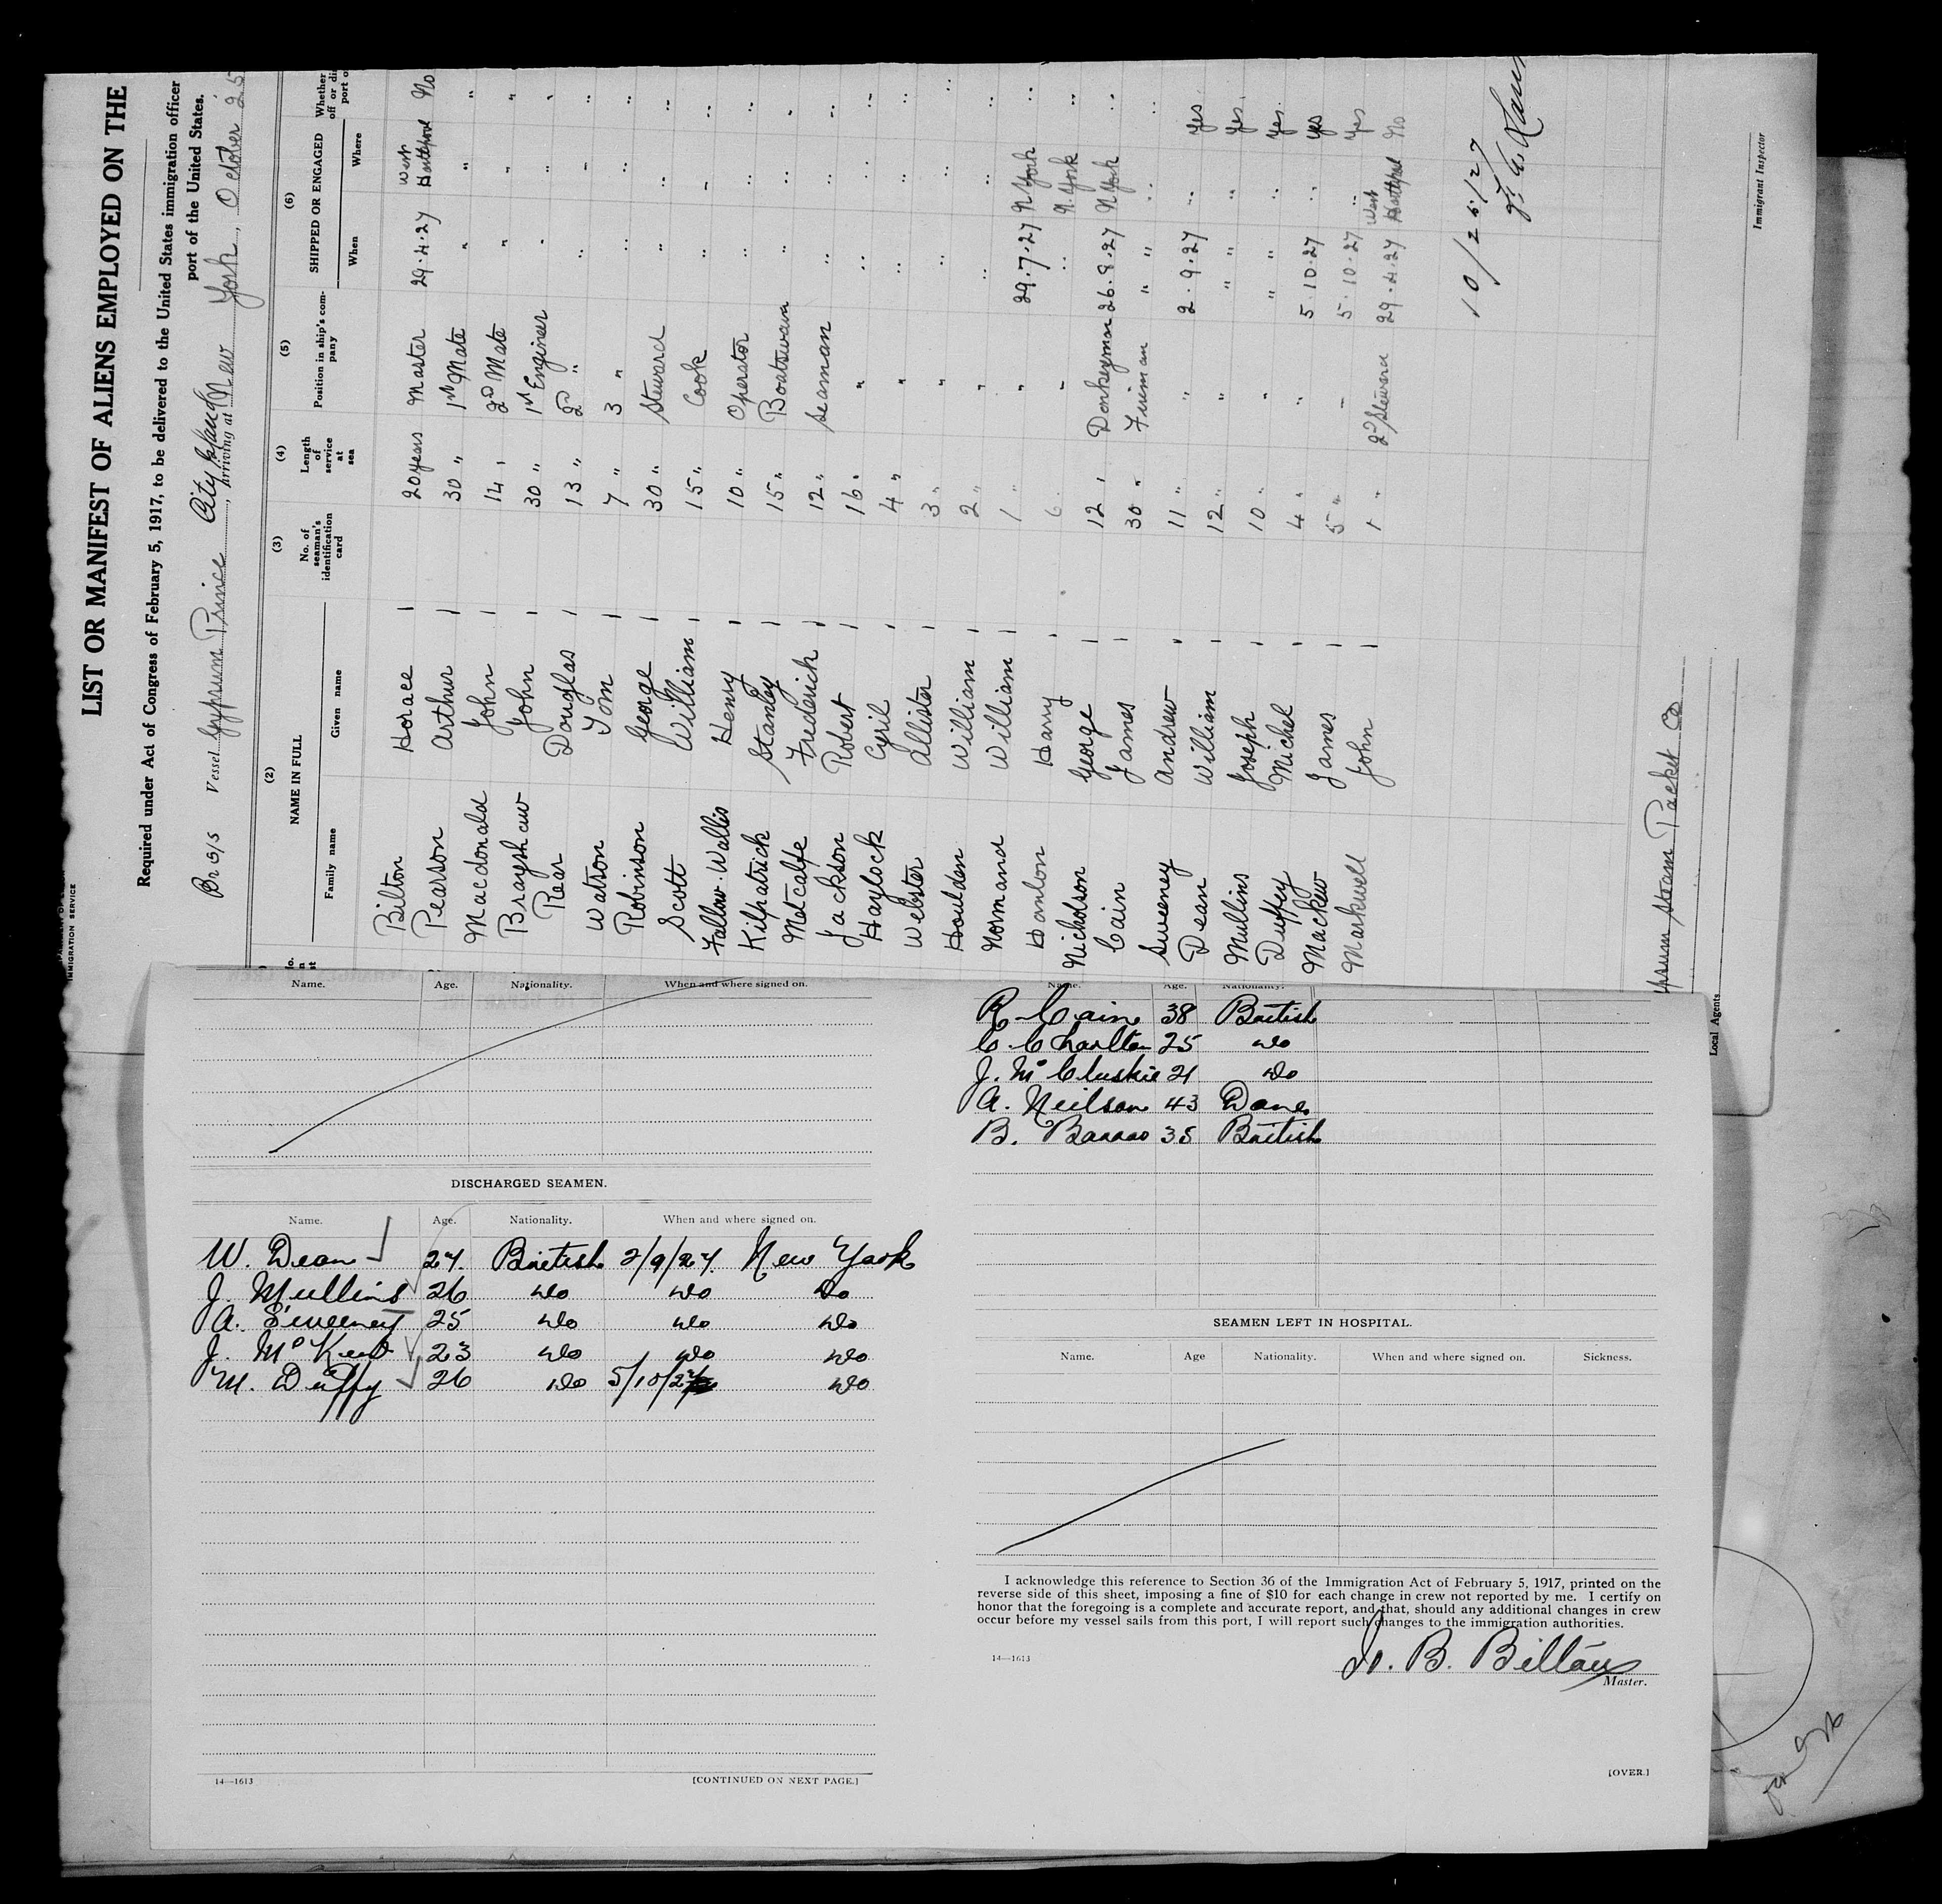 LIST OR MANIFEST OF ALIENS EMPLOYED ON THE
Required under Act of Congress of February 5, 1917, to be delivered to the United States immigration officer
port of the United States.
IMMIGRATION SERVICE
Br S/S Vessel Gypsum Prince City Island, arriving at New York, October 25
(2) (3) (4) (5) (6)
NAME IN FULL No. of seaman's identification card Length of service at sea Position in ship's company SHIPPED OR ENGAGED Whether
Family name Given name When Where
Bilton Horace 20 years Master 29.4.27 West Hartlepool No
Pearson Arthur 30 " 1st Mate " " "
Macdonald John 14 " 2D Mate " " "
Brayshaw John 30 " 1st Engineer " " "
Rear Douglas 13 " 2D " " " "
Watson Tom 7 " 3 " " " "
Robinson George 30 " Steward " " "
Scott William 15 " Cook " " "
Fallow-Wallis Henry 10 " Operator " " "
Kilpatrick Stanley 15 " Boatswain " " "
Metcalfe Frederick 12 " Seaman " " "
Jackson Robert 16 " " " " "
Haylock Cyril 4 " " " " "
Webster Allister 3 " " " " "
Houlden William 2 " " " " "
Normand William 1 " " 29.7.27 N York "
Hanlon Harry 6 " " N. York "
Nicholson George 12 " Donkeyman 26.8.27 N York "
Cain James 30 " Fireman " " "
Sweeney Andrew 11 " " 2.9.27 " Yes
Dean William 12 " " " " Yes
Mullins Joseph 10 " " " " Yes
Duffey Michel 4 " " 5.10.27 " Yes
Mackew James 5 " " 5.10.27 " Yes
Markwell John 1 " 2D Steward 29.4.27 West Hartlepool No
10/25/27
Immigrant Inspector
Gypsum Steam Packet Co
Local Agents
Name. Age. Nationality. When and where signed on.
DISCHARGED SEAMEN.
Name. Age. Nationality. When and where signed on.
W. Dean 27. British 2/9/27. New York
J. Mullins 26 do do do
A. Sweeney 25 do do do
J. McKew 23 do do do
M. Duffy 26 do 5/10/27 do
14—1613 [CONTINUED ON NEXT PAGE.]
Name. Age. Nationality.
R. Cain 38 British
C. Charlton 25 do
J. McCluskie 21 do
A. Neilson 43 Dane
B. 35 British
SEAMEN LEFT IN HOSPITAL.
Name. Age Nationality. When and where signed on. Sickness.
I acknowledge this reference to Section 36 of the Immigration Act of February 5, 1917, printed on the
reverse side of this sheet, imposing a fine of $10 for each change in crew not reported by me. I certify on
honor that the foregoing is a complete and accurate report, and that, should any additional changes in crew
occur before my vessel sails from this port, I will report such changes to the immigration authorities.
14—1613
H. B. Bilton
Master.
[OVER.]